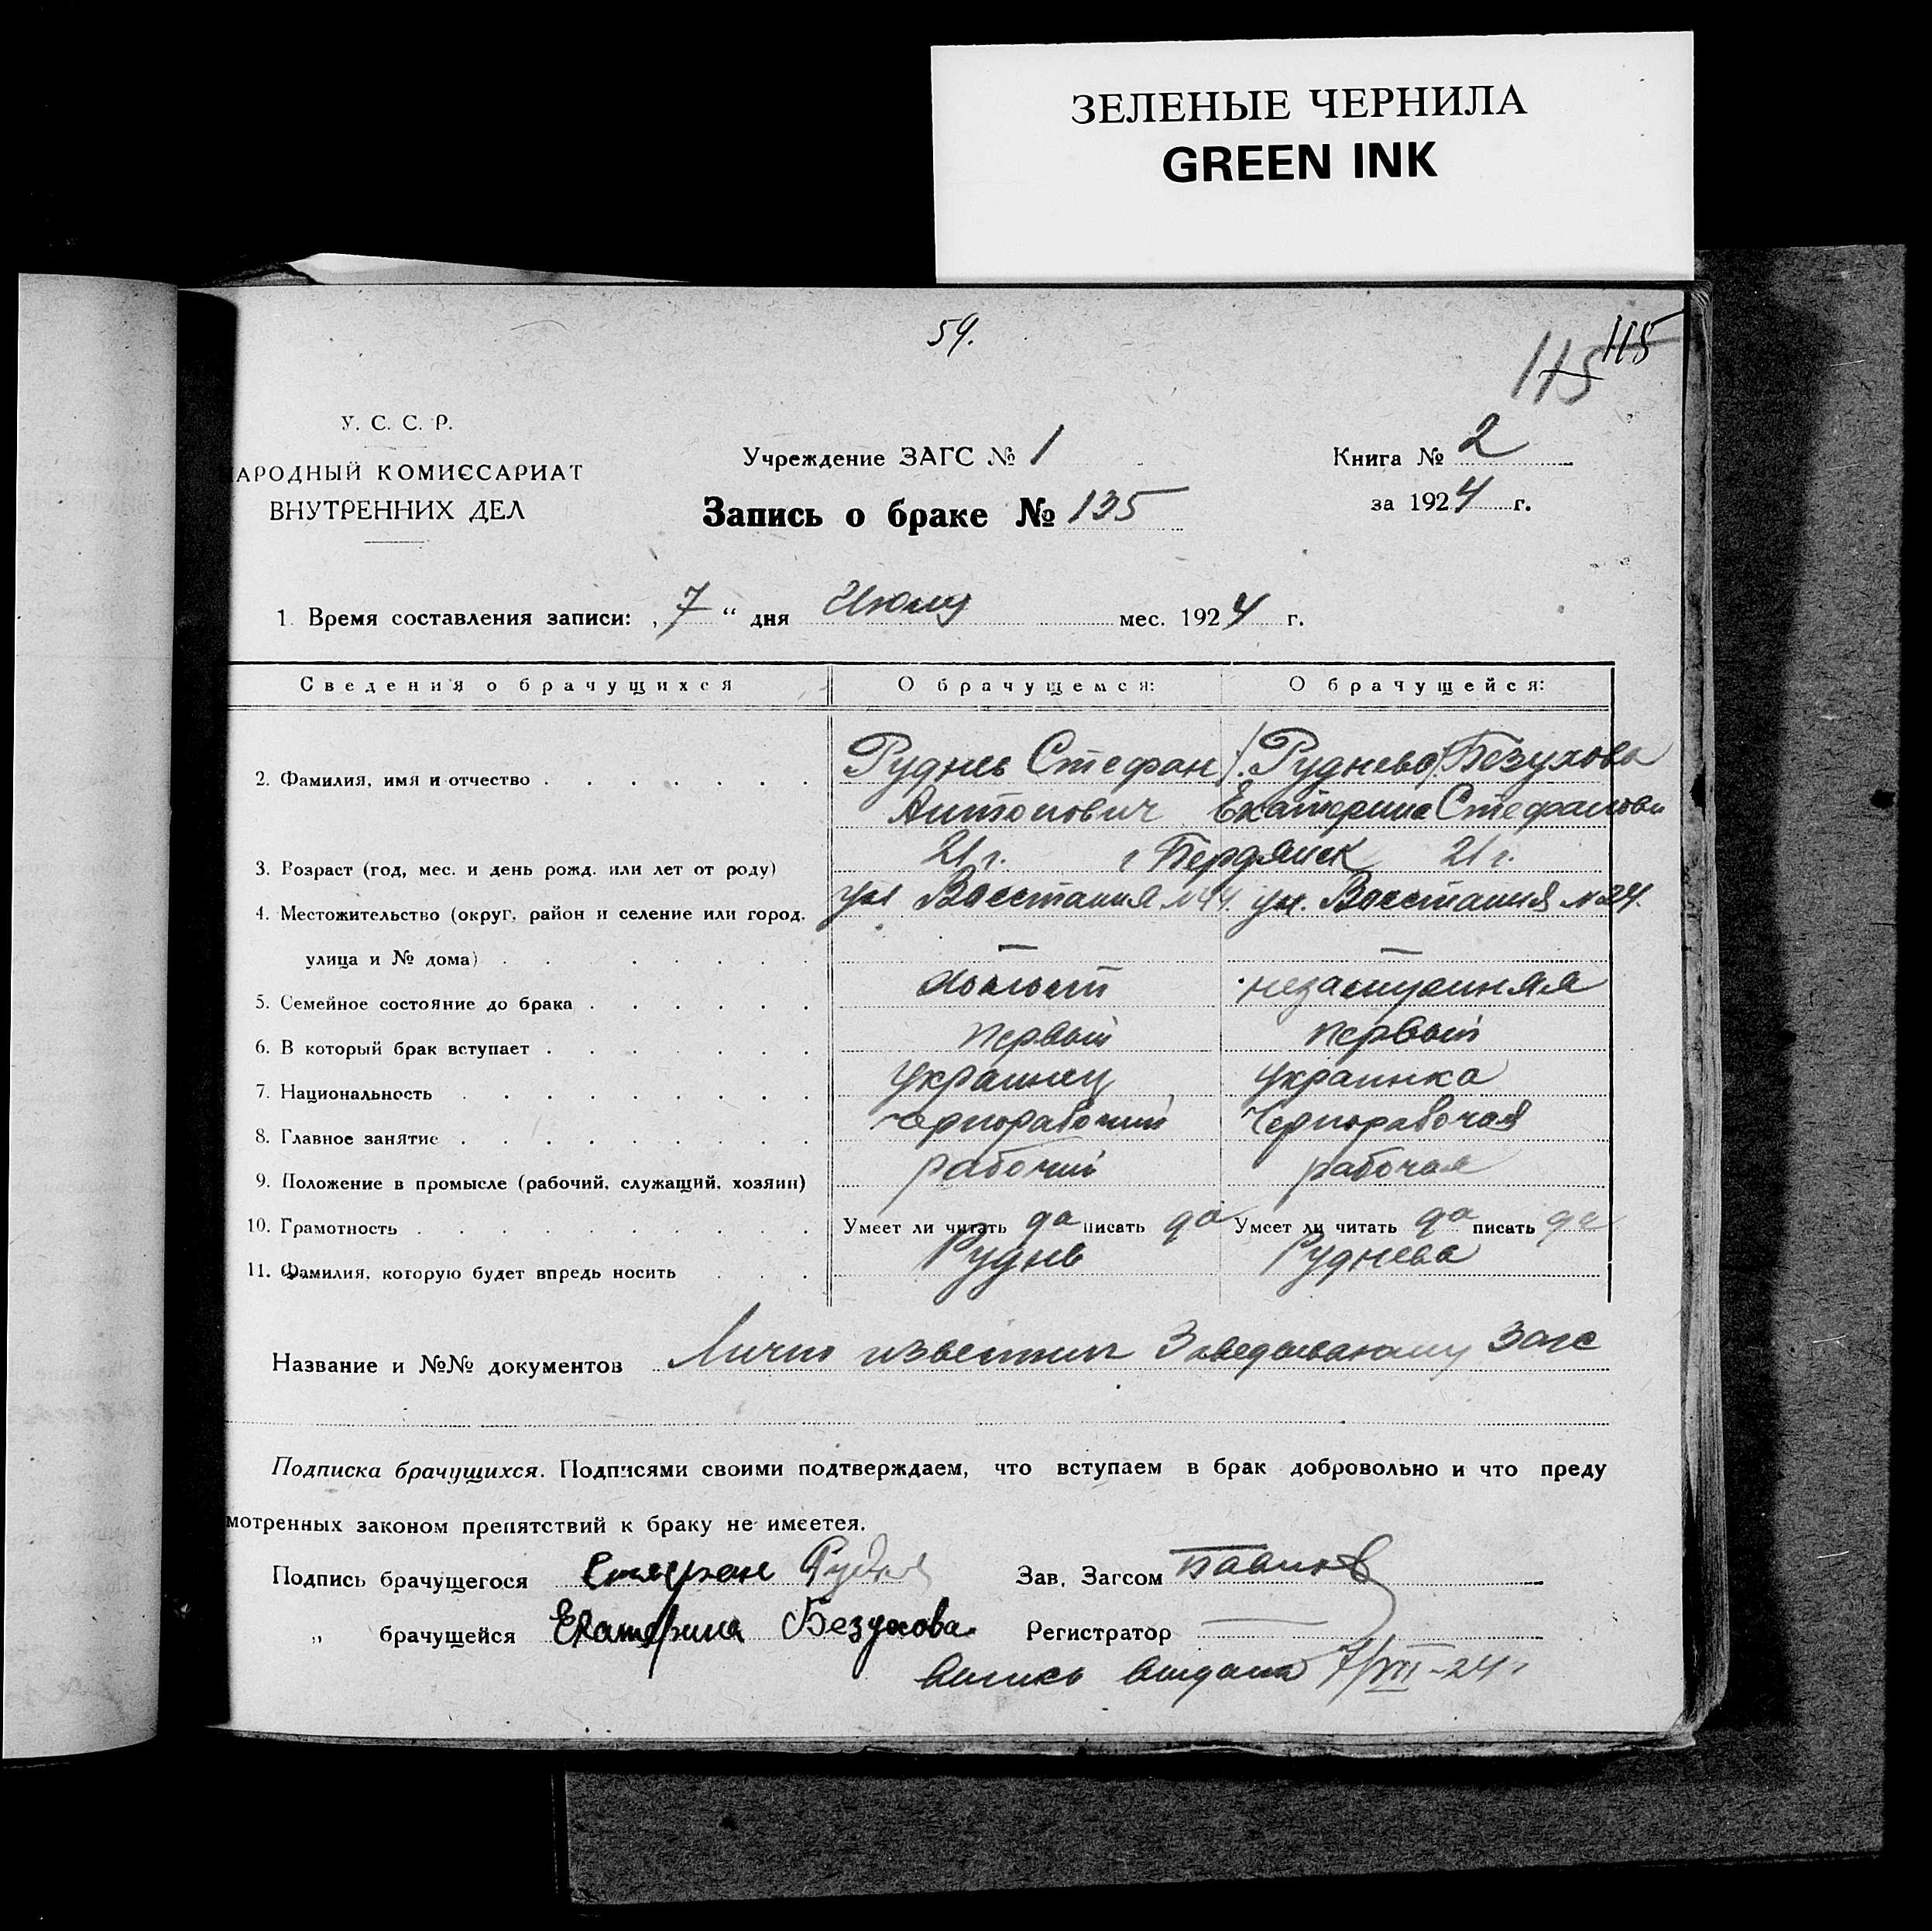 ЗЕЛЕНЫЕ ЧЕРНИЛА
GREEN INK
59.
115
115
У. С. С. Р.
НАРОДНЫЙ КОМИССАРИАТ
ВНУТРЕННИХ ДЕЛ
Учреждение ЗАГС № 1
Запись о браке № 135
Книга № 2
за 1924 г.
1. Время составления записи: „7“ дня Июлу мес. 1924 г.
Сведения о брачущихся О брачущемся: О брачущейся:
2. Фамилия, имя и отчество Руднев Стефан (Руднева) Безухова
Антонович Екатерина Стефанов
3. Возраст (год, мес. и день рожд. или лет от роду) 21 г. г Бердянск 21 г.
4. Местожительство (округ, район и селение или город, ул Восстания ул. Восстания № 24.
улица и № дома) — —
5. Семейное состояние до брака холост незамужняя
6. В который брак вступает первый первый
7. Национальность украинец украинка
8. Главное занятие Чернорабочий Чернорабочая
9. Положение в промысле (рабочий, служащий, хозяин) рабочий рабочая
10. Грамотность Умеет ли читать да писать да Умеет ли читать да писать да
11. Фамилия, которую будет впредь носить Руднев Руднева
Название и №№ документов Лично известны Заведывающему Загс
Подписка брачущихся. Подписями своими подтверждаем, что вступаем в брак добровольно и что преду
мотренных законом препятствий к браку не имеется.
Подпись брачущегося Стефан Руднев Зав. Загсом
„ брачущейся Екатерина Безухова Регистратор —
выпись выдана 7/VII-24 г